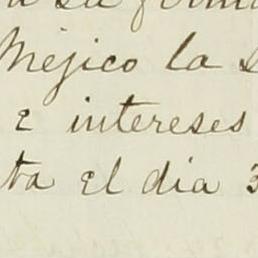 a su firma
Mejico la
e intereses
ta el dia 3